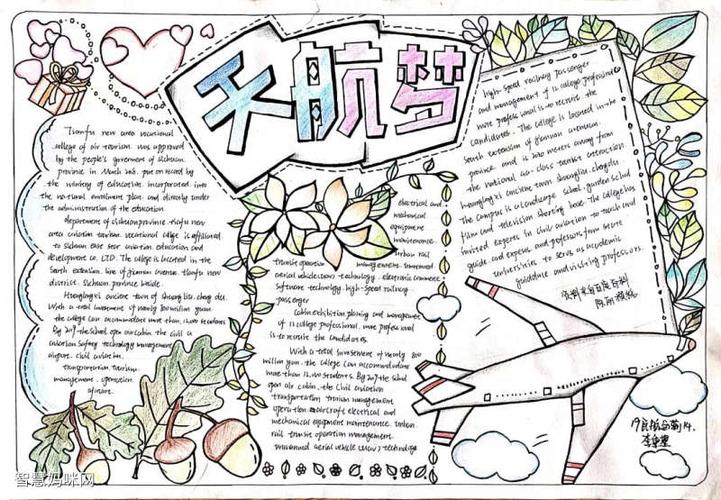 天航梦
Tianfu new area vocational
college of air tourism was approved
by the people's government of Sichuan
province in March
the ministry of education incorporated into
the national enrolment plan and directly under
the administration of the education
department of sichuan province tianfu new
area aviation tourism vocational college is affiliated
to sichuan east star aviation education and
development co. LTD. The college is located in the
South extension line of jiannan avenue tianfu new
district. Sichuan province beside
Huanglongxi ancient town of
With a total investment of nearly 800 million yuan
the college can accommodate more than 12,000 students
By 2019 the school open air cabin the civil
aviation safety technology management
airport. civil aviation
transportation tourism
management. operation
aircraft
electrical and
mechanical
equipment
maintenance
urban rail
transit operation management. unmanned
aerial vehicle (uav) technology. electronic commerce
software technology high-speed railway
passenger
Cabin exhibition planning and management
of 12 college professional. more professional
is to recruit the candidates.
With a total investment of nearly 800
million yuan. the college can accommodate
more than 12,000 students. By 2019 the school
open air cabin. the civil aviation
transportation tourism management
operation aircraft electrical and
mechanical equipment maintenance urban
rail transit operation management.
unmanned aerial vehicle (uav) technology
high-speed railway passenger
and management of 12 college professional
more professional is to recruit the
candidates. The college is located in the
South extension of jiannan avenue
province and is 200 meters away from
the national
huanglongxi ancient town shuangliu chengdu
The campus is a landscape school. garden school
film and television shooting base. The college has
invited experts in civil aviation to teach and
guide and experts and professors from many
universities to serve as academic
guidance and visiting professors.
资料来自百度百科
智慧妈咪网